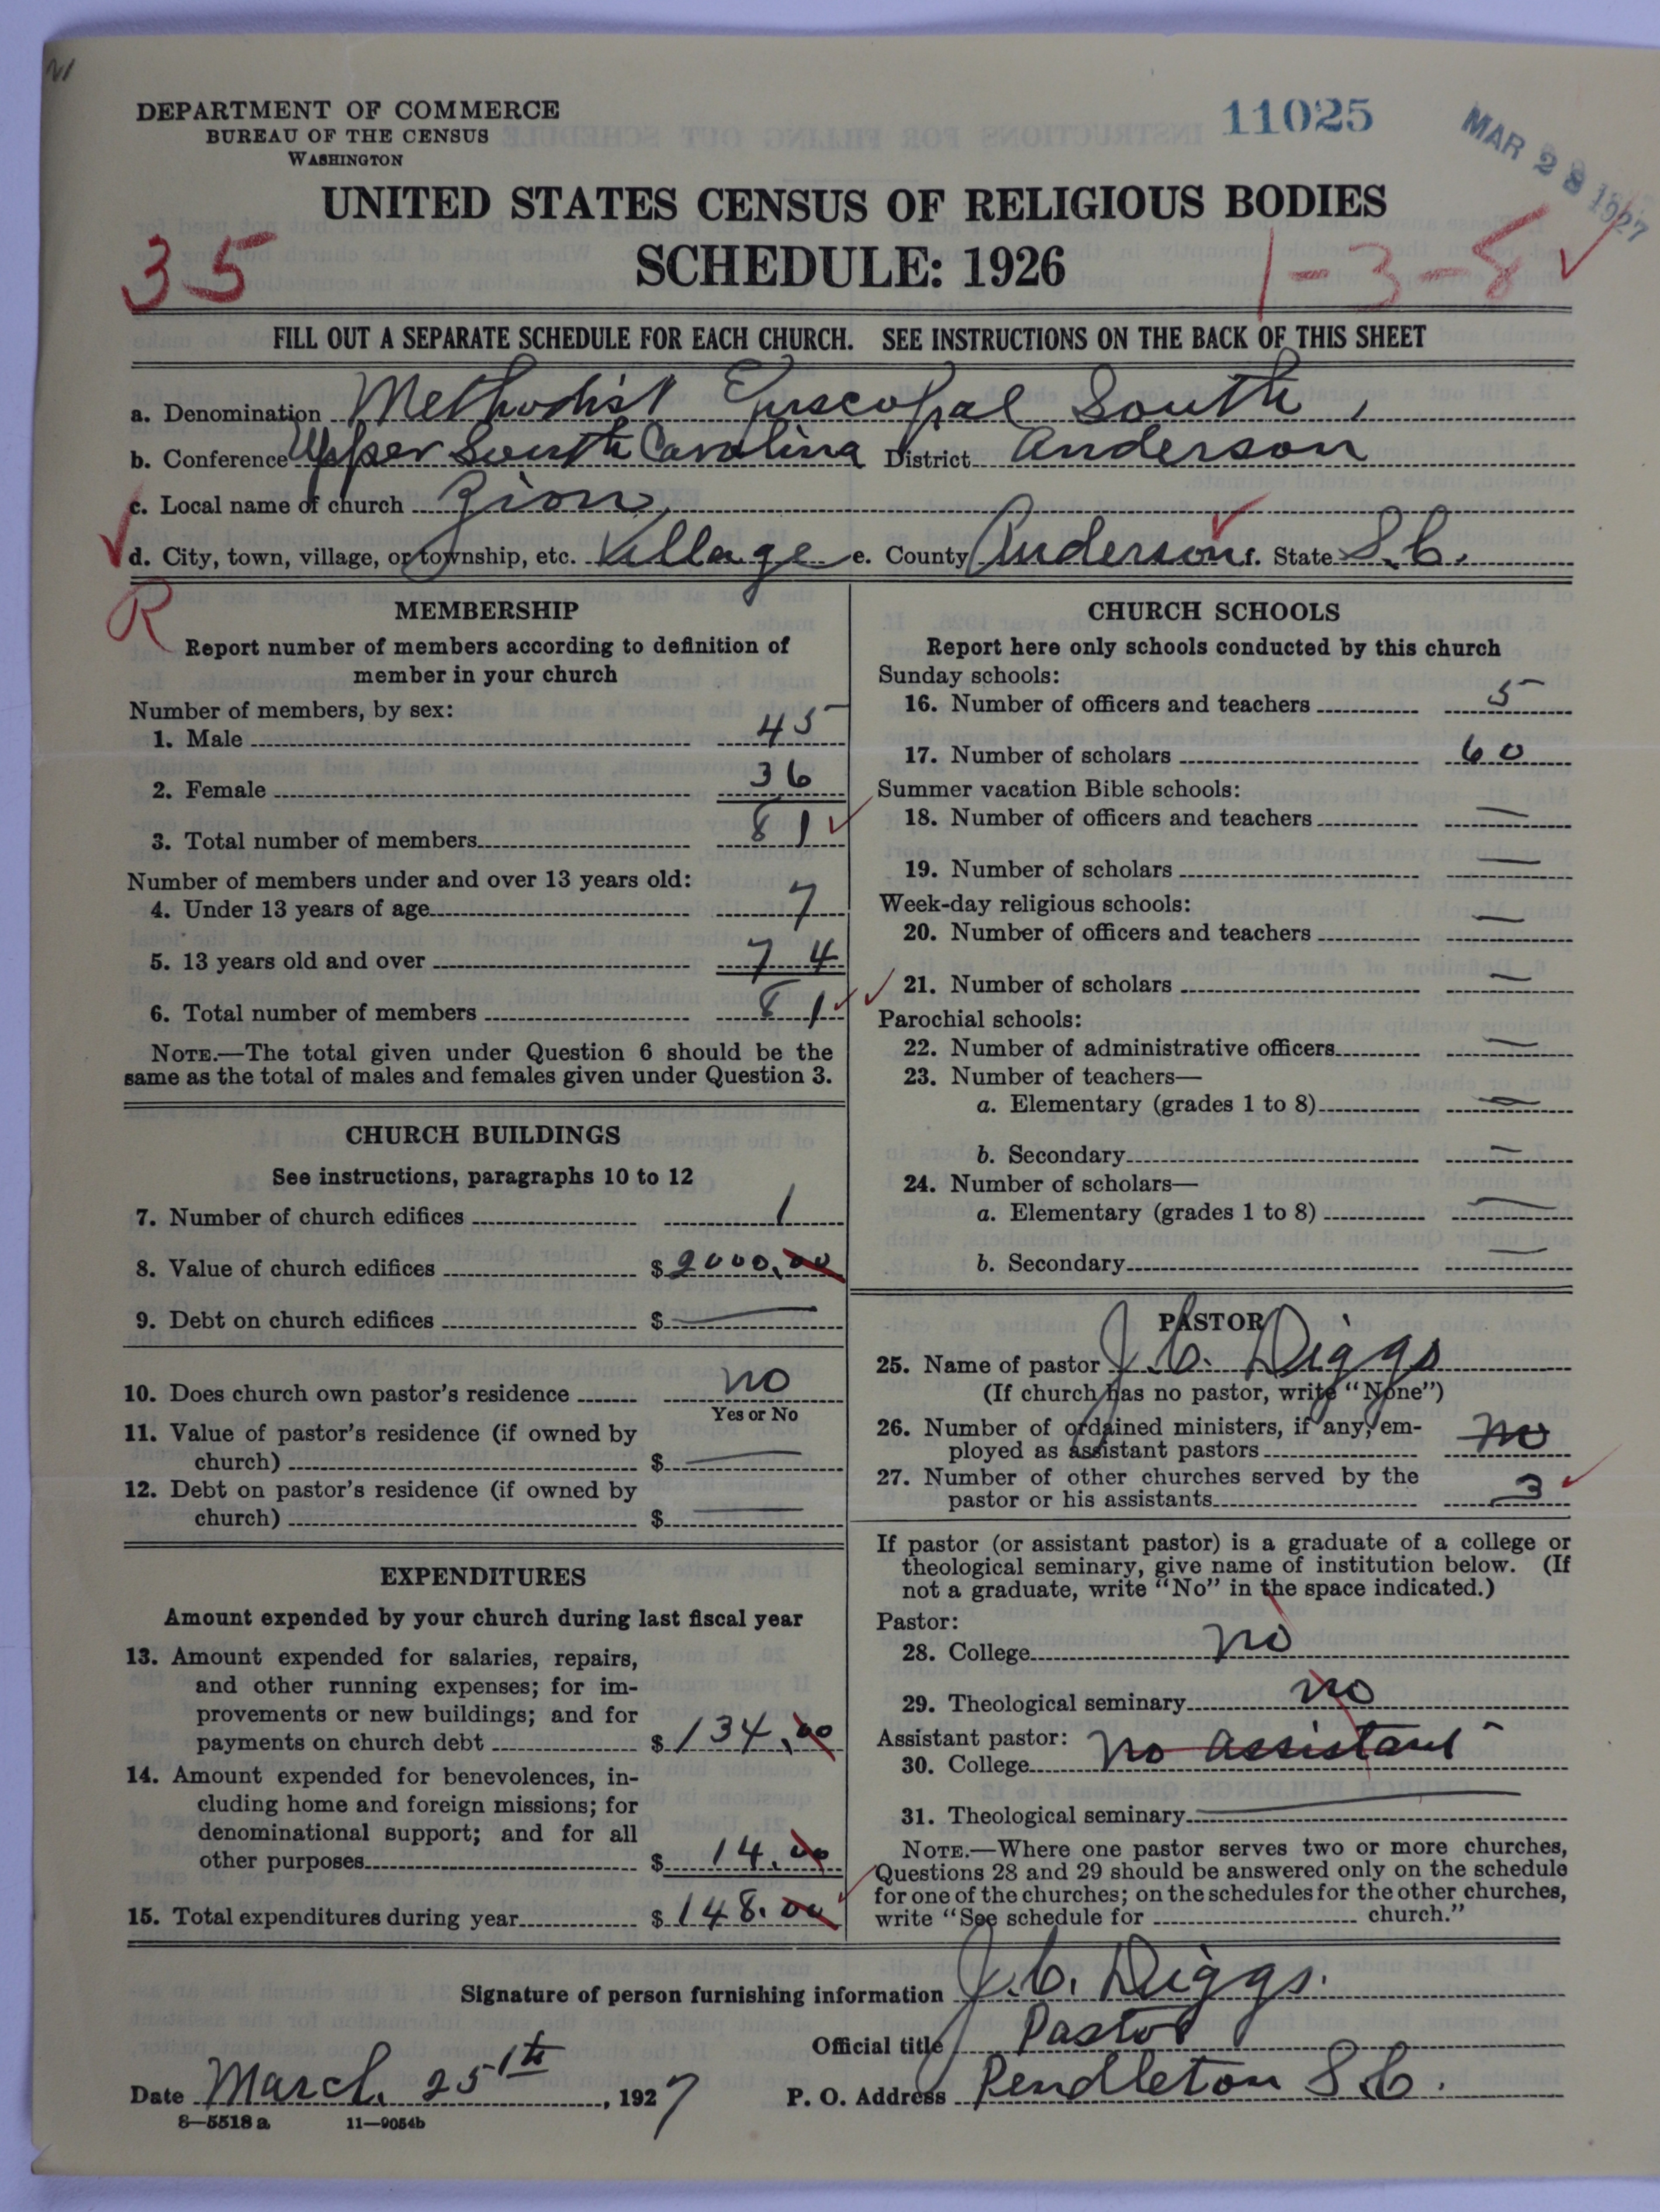 DEPARTMENT OF COMMERCE
BUREAU OF THE CENSUS
WASHINGTON
11025
MAR 28 1927
UNITED STATES CENSUS OF RELIGIOUS BODIES
SCHEDULE: 1926
35
1-3-5
FILL OUT A SEPARATE SCHEDULE FOR EACH CHURCH. SEE INSTRUCTIONS ON THE BACK OF THIS SHEET
a. Denomination Methodist Episcopal South,
b. Conference Upper South Carolina District Anderson
c. Local name of church Zion,
d. City, town, village, or township, etc. Village e. County Anderson f. State S.C.
R
MEMBERSHIP
Report number of members according to definition of
member in your church
Number of members, by sex:
1. Male 45
2. Female 36
3. Total number of members 81
Number of members under and over 13 years old:
4. Under 13 years of age 7
5. 13 years old and over 74
6. Total number of members 81
NOTE.—The total given under Question 6 should be the
same as the total of males and females given under Question 3.
CHURCH BUILDINGS
See instructions, paragraphs 10 to 12
7. Number of church edifices 1
8. Value of church edifices $2000.00
9. Debt on church edifices $ —
10. Does church own pastor's residence no
Yes or No
11. Value of pastor's residence (if owned by
church) $ —
12. Debt on pastor's residence (if owned by
church) $ —
EXPENDITURES
Amount expended by your church during last fiscal year
13. Amount expended for salaries, repairs,
and other running expenses; for im-
provements or new buildings; and for
payments on church debt $134.00
14. Amount expended for benevolences, in-
cluding home and foreign missions; for
denominational support; and for all
other purposes $14.00
15. Total expenditures during year $148.00
CHURCH SCHOOLS
Report here only schools conducted by this church
Sunday schools:
16. Number of officers and teachers 5
17. Number of scholars 60
Summer vacation Bible schools:
18. Number of officers and teachers —
19. Number of scholars —
Week-day religious schools:
20. Number of officers and teachers —
21. Number of scholars —
Parochial schools:
22. Number of administrative officers —
23. Number of teachers—
a. Elementary (grades 1 to 8) —
b. Secondary —
24. Number of scholars—
a. Elementary (grades 1 to 8) —
b. Secondary —
PASTOR
25. Name of pastor J.C. Diggs
(If church has no pastor, write "None")
26. Number of ordained ministers, if any, em-
ployed as assistant pastors no
27. Number of other churches served by the
pastor or his assistants 3
If pastor (or assistant pastor) is a graduate of a college or
theological seminary, give name of institution below. (If
not a graduate, write "No" in the space indicated.)
Pastor:
28. College no
29. Theological seminary no
Assistant pastor:
30. College no assistant
31. Theological seminary —
NOTE.—Where one pastor serves two or more churches,
Questions 28 and 29 should be answered only on the schedule
for one of the churches; on the schedules for the other churches,
write "See schedule for church."
Signature of person furnishing information J.C. Diggs.
Official title Pastor
Date March 25th, 1927 P. O. Address Pendleton S.C.
8—5518a 11—9054b